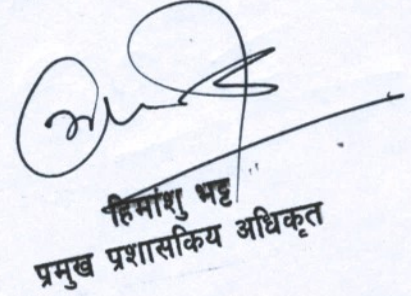 हिमांशु भट्ट
प्रमुख प्रशासकिय अधिकृत